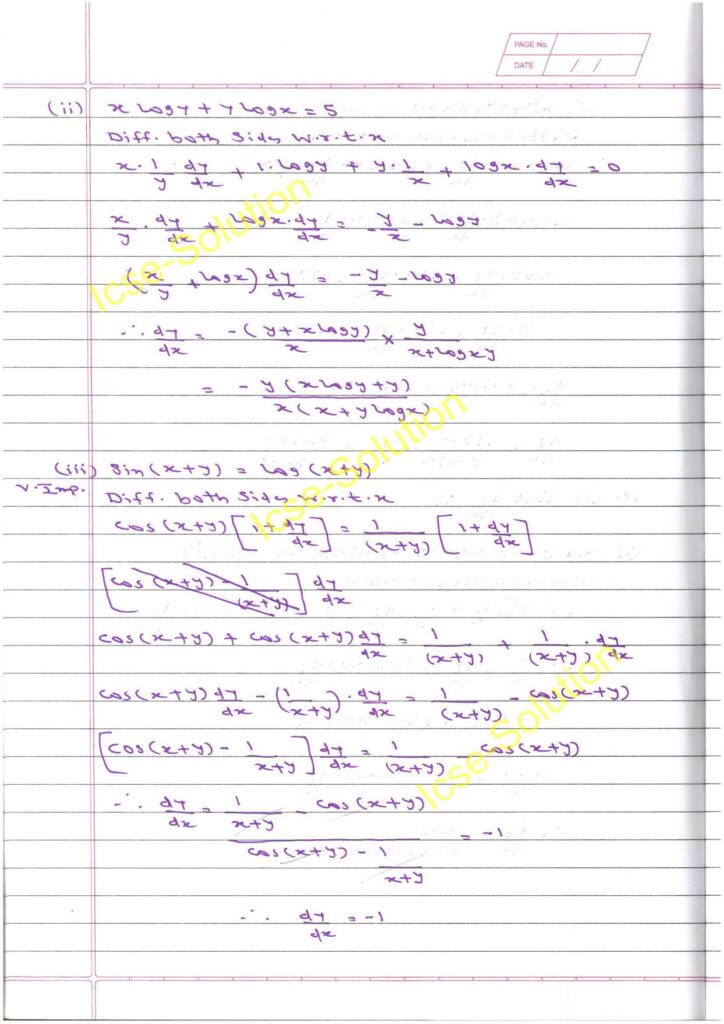 PAGE No.
DATE / /
(ii) x logy + y logx = 5
Diff. both sides w.r.t. x
x · 1/y · dy/dx + 1 · logy + y · 1/x + logx · dy/dx = 0
x/y · dy/dx + logx · dy/dx = - y/x - logy
(x/y + logx) dy/dx = -y/x - logy
∴ dy/dx = -(y + x logy)/x × y/(x + logxy)
= - y(x logy + y)/x(x + y logx)
(iii) Sin(x+y) = log(x+y)
V. Imp. Diff. both sides w.r.t. x
cos(x+y) [1 + dy/dx] = 1/(x+y) [1 + dy/dx]
[cos(x+y) - 1/(x+y)] dy/dx
cos(x+y) + cos(x+y) dy/dx = 1/(x+y) + 1/(x+y) · dy/dx
cos(x+y) dy/dx - (1/x+y) · dy/dx = 1/(x+y) - cos(x+y)
[cos(x+y) - 1/x+y] dy/dx = 1/(x+y) - cos(x+y)
∴ dy/dx = (1/x+y - cos(x+y))/(cos(x+y) - 1/x+y) = -1
∴ dy/dx = -1
Icse-Solution
Icse-Solution
Icse-Solution